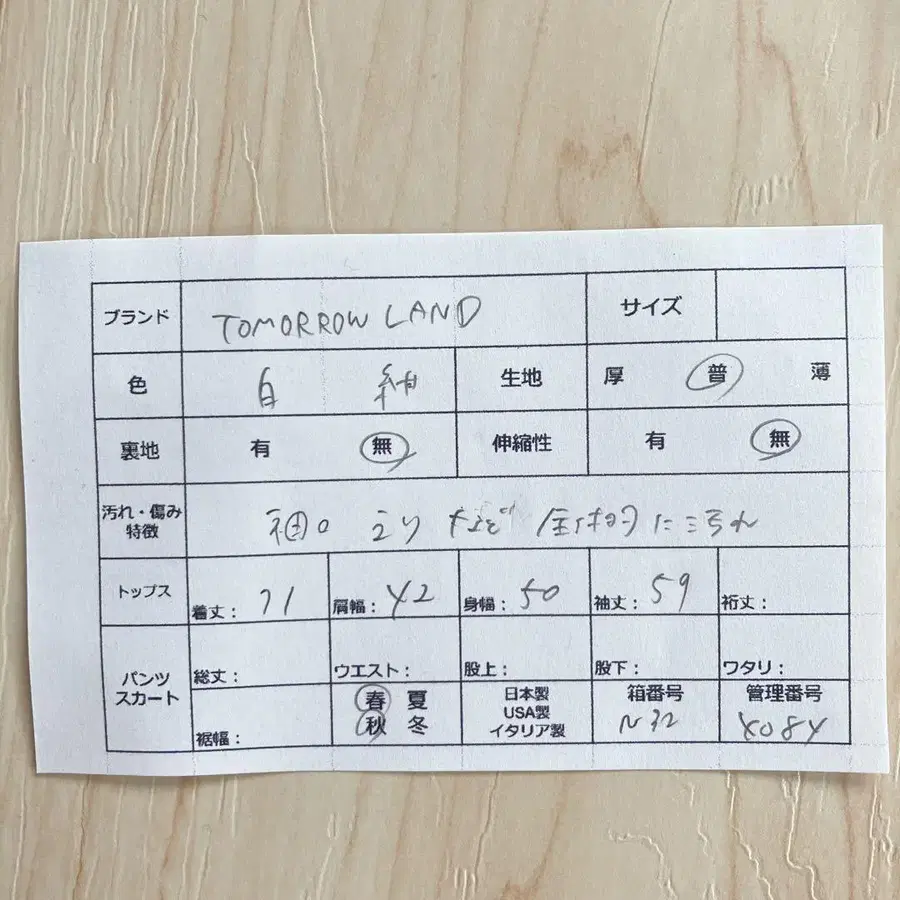 ブランド TOMORROW LAND サイズ
色 白 紺 生地 厚 普 薄
裏地 有 無 伸縮性 有 無
汚れ・傷み
特徴 袖口 えり など 全体的に汚れ
トップス 着丈: 71 肩幅: 42 身幅: 50 袖丈: 59 裄丈:
パンツ
スカート 総丈: ウエスト: 股上: 股下: ワタリ:
裾幅: 春 夏 秋 冬 日本製 USA製 イタリア製 箱番号 N32 管理番号 4084